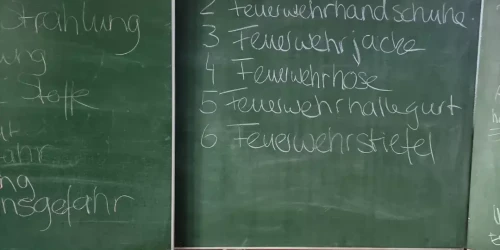 Strahlung
ung
Stoffe
ng
nsgefahr
2 Feuerwehrhandschuhe
3 Feuerwehrjacke
4 Feuerwehrhose
5 Feuerwehrhaltegurt
6 Feuerwehrstiefel